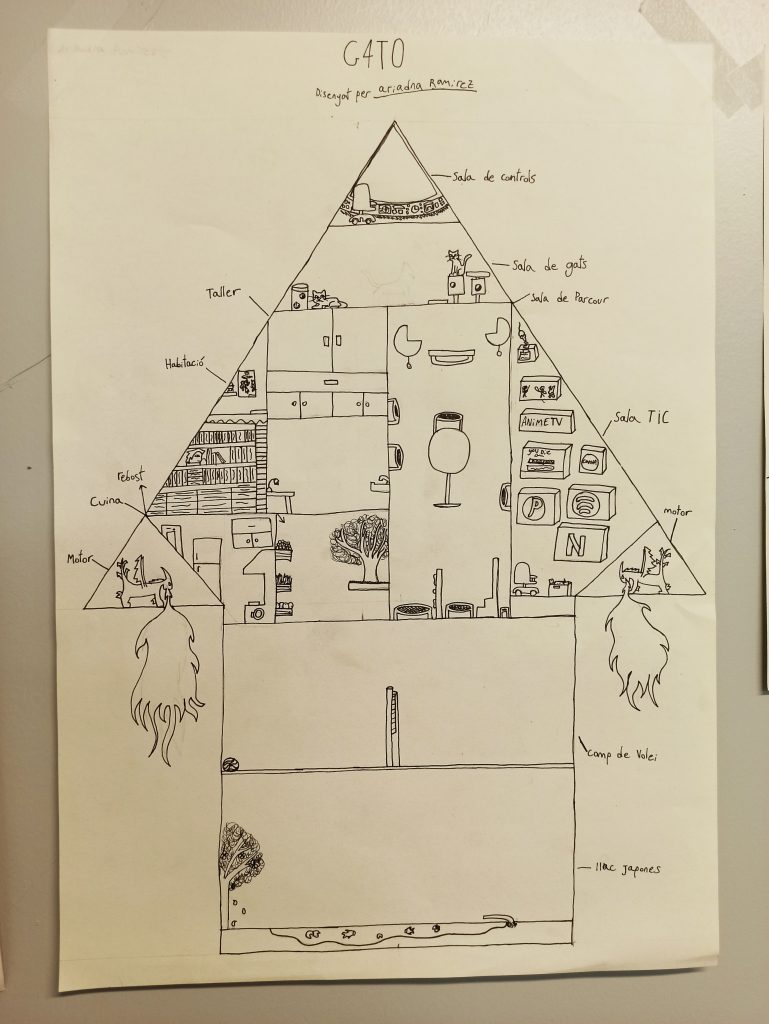 G4TO
Disenyat per ariadna Ramirez
Sala de controls
Sala de gats
Taller
Sala de Parcour
Habitació
ANiMETV
Sala TIC
rebost
Cuina
P
motor
N
Motor
Camp de Volei
llac japones